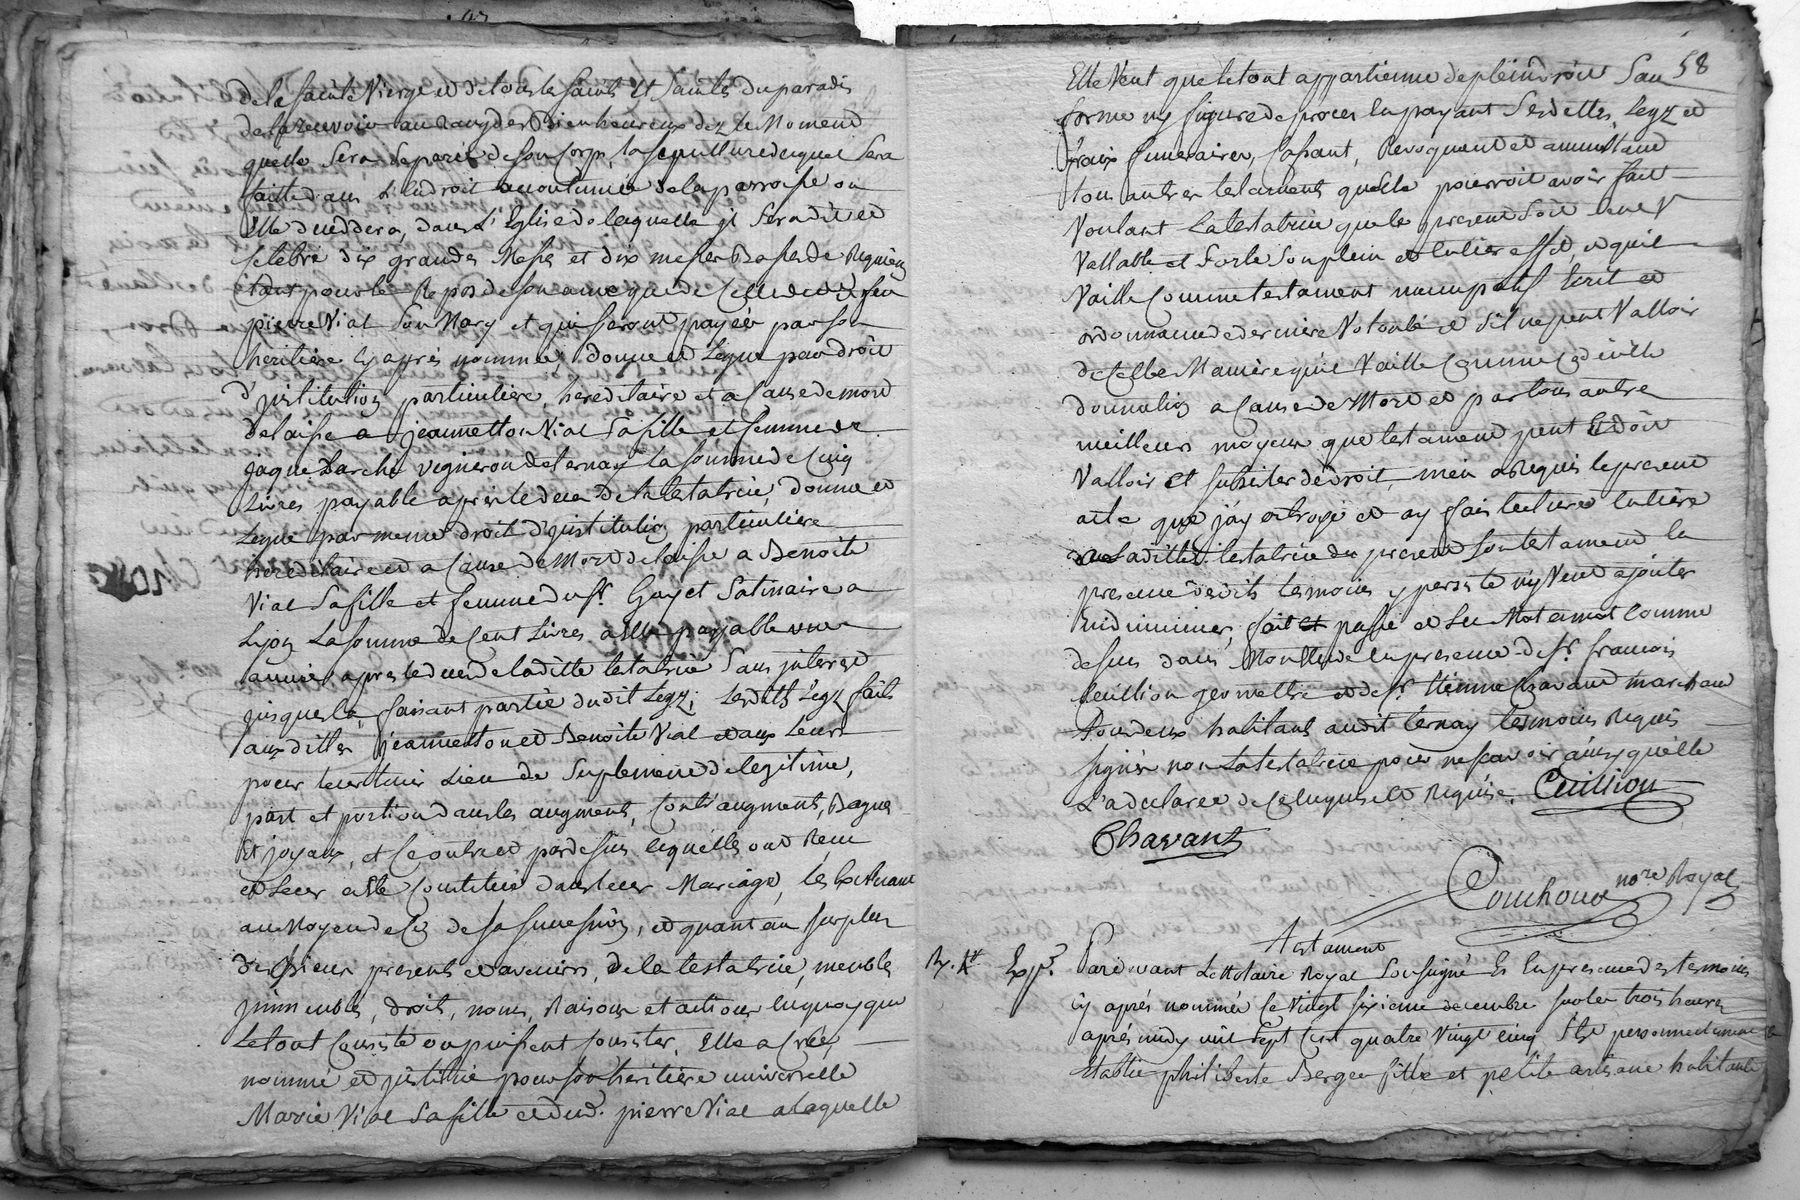 de la sainte Vierge et de tous les saints et saintes du paradis
de la recevoir au rang des Bienheureux dez le Moment
quelle sera separée de son corps, la sepulture duquel sera
faitte dans l'endroit accoutumée de la parroisse ou
elle deceddera, dans l'Eglise de laquelle il sera dit et
celebré dix grandes Messes et dix messes Basses de Requiem
tant pour le Repos de son ame que de celle de feu
pierre Vial son Mary et qui seront payées par son
heritière cy après nommée, donne et Legue par droit
d'jnstitution particulière, hereditaire et a cause de mort
delaisse a jeannetton Vial sa fille et femme de
jaque Larché vigneron de ternay la somme de Cinq
Livres payable après le deces de la testatrice, donne et
Legue par meme droit d'jnstitution particulière
hereditaire et a Cause de Mort delaisse a Benoite
Vial sa fille et femme du sr. Guyet Satinaire a
Lyon La somme de Cent Livres a elle payable une
année après le deces de la ditte testatrice sans jnterest
jusques la, faisant partie dudit Legz; Lesdits Legz faits
aux dittes jeannetton et Benoite Vial et aux Leurs
pour leur tenir Lieu de suplement de legitime,
part et portion dans les augments, Contr'augments, Bagues
et joyaux, et ce outre et par dessus lequelles ont Reçu
et Leur a été Constitué dans leur Mariage, les Excluant
au Moyen de ce de sa succession, et quant au surplus
des biens presents et avenirs, de la testatrice, meubles
jmmeubles, droits, noms, Raisons et actions en quoy que
Le tout Consiste ou puissent consister, Elle a Créé,
nommé et jnstitué pour son heritière universelle
Marie Vial sa fille et dud. pierre Vial a laquelle
58
Elle Veut que le tout appartienne de plein droit San
forme ny figure de procès en payant ses dettes, Legz et
fraix funeraires, Cassant, Revoquant et annullant
tous autres testaments quelle pourroit avoir fait
Voulant La testatrice que le present soit seul
Vallable et sorte son plein et entier effet, et quil
Vaille Comme testament nuncupatif Ecrit et
ordonnance de derniere Volonté et s'il ne peut Valloir
de cette Manière qu'il Vaille Comme Codicille
donnation a Cause de Mort et par tous autre
meilleurs moyens que testament peut Et doit
Valloir et subsister de droit, men a Requis le present
acte que j'ay octroyé et ay fait lecture entière
a La ditte testatrice du present son testament en
presence desdits temoins y persiste ny Veut ajouter
ni diminuer, fait et passé et Lu Mot a mot comme
dessus dans en presence de sr. francois
Cuillion geomettre et de sr. Etienne Chavant marchand
Tous deux habitants audit ternay temoins Requis
signés non La testatrice pour ne sçavoir ainsy quelle
L'a declaree de ce enquise et Requise. Cuillion
Chavant
Couchoud nore. Royal
Testament
Exp.
Pardevant Le Notaire Royal Soussigné Et En presence des temoins
cy après nommée ce vingt sixieme decembre sur les trois heures
après midy mil sept cent quatre vingt cinq s'est personnellement
Etablie philiberte Berger fille et petite artisane habitante